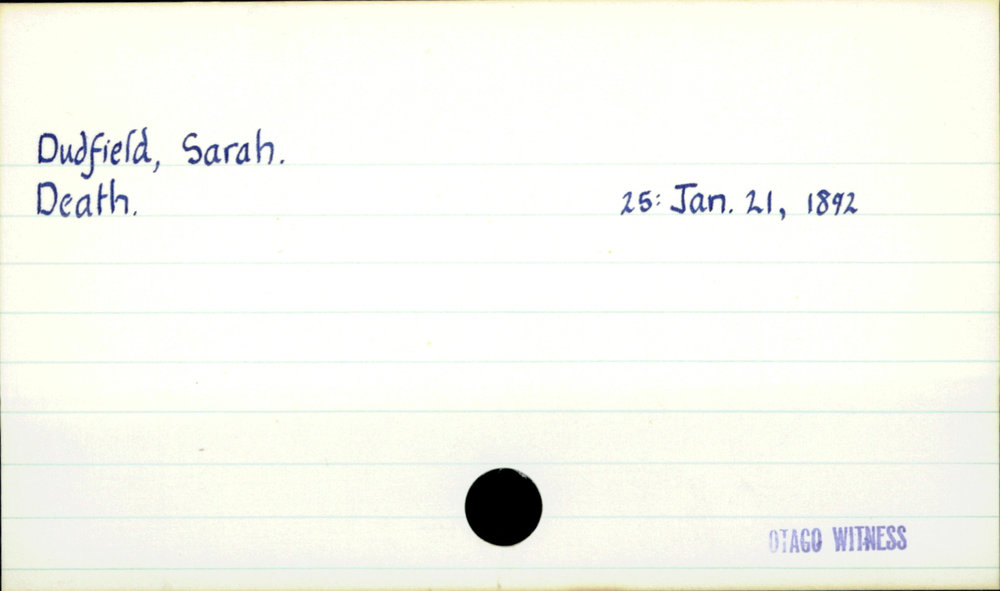 Dudfield, Sarah.
Death. 25: Jan. 21, 1892
OTAGO WITNESS